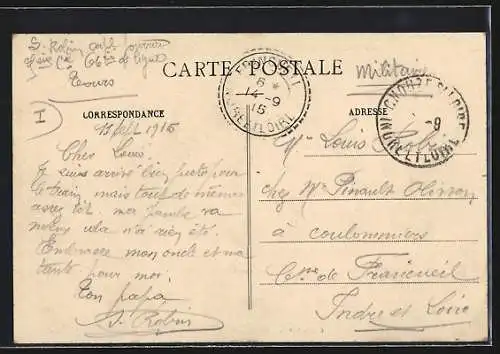 S. Robin
66e de ligne
Tours
Militaire
CARTE POSTALE
I
CORRESPONDANCE
ADRESSE
6 *
14-9
15
INDRE ET LOIRE
-9
INDRE ET LOIRE
13 Sept 1915
Cher Louis
Je suis arrivé bien juste pour
le train mais tout de même
assez tôt. ma jambe va
mieux cela n'a rien été.
Embrasse mon oncle et ma
tante pour moi.
Ton papa
S. Robin
Mr Louis Robin
chez Mr Pinault
à coulommiers
Cne de Francueil
Indre et Loire